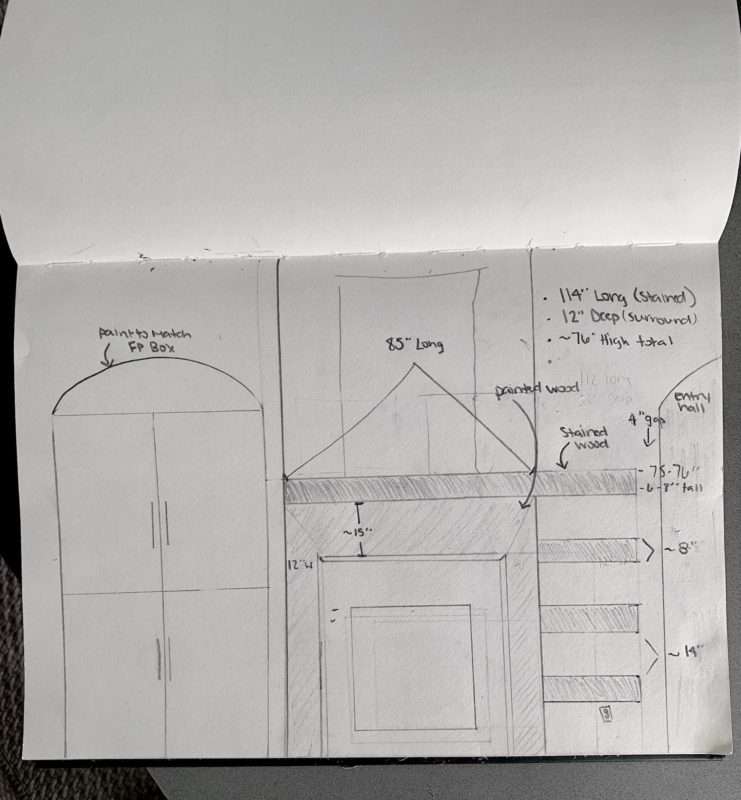 paint to Match
FP Box
85" Long
• 114" Long (stained)
• 12" Deep (surround)
• ~76" High total
•
painted wood
Stained
wood
4" gap
entry
hall
- 75-76"
- 6-8" tall
~15"
12" w
~ 8"
~ 14"